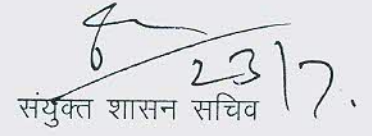 23/7.
संयुक्त शासन सचिव